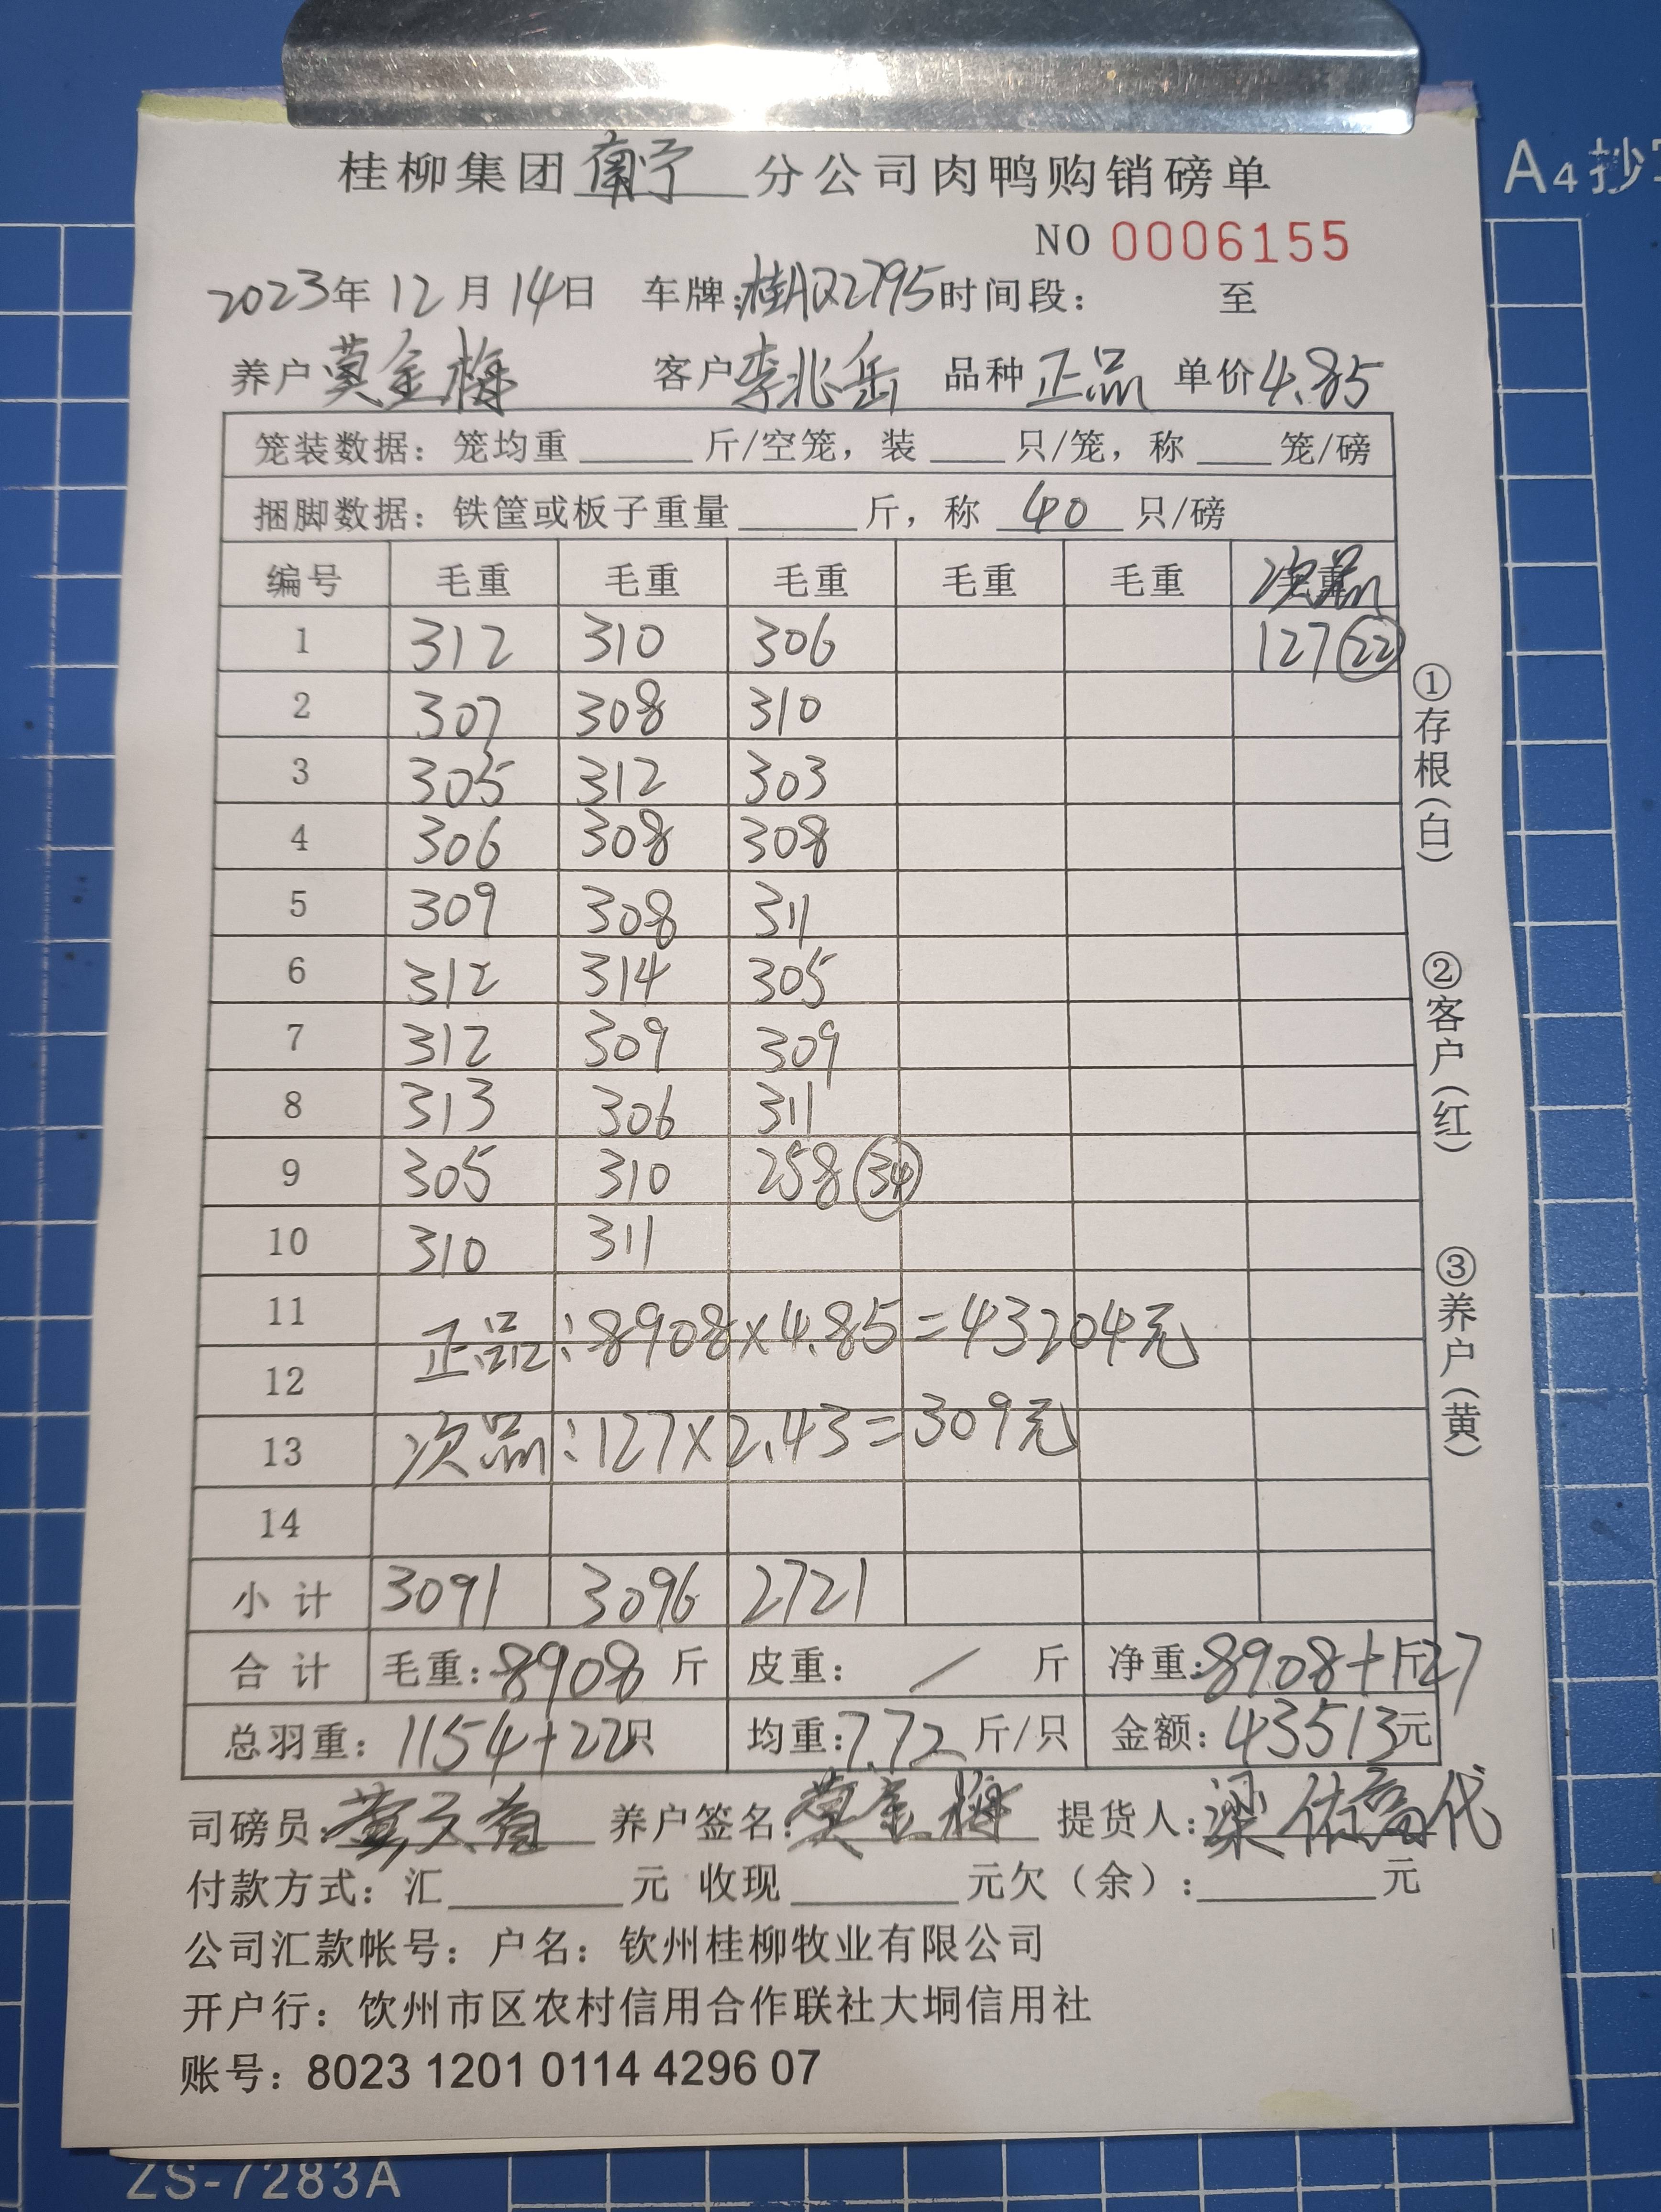 A4抄写
桂柳集团南宁分公司肉鸭购销磅单
NO 0006155
2023年12月14日 车牌:桂AQ2795时间段: 至
养户莫金梅 客户李兆岳 品种正品 单价4.85
笼装数据:笼均重 斤/空笼,装 只/笼,称 笼/磅
捆脚数据:铁筐或板子重量 斤,称 40 只/磅
编号 毛重 毛重 毛重 毛重 毛重 次品
1 312 310 306 127 22
2 307 308 310
3 305 312 303
4 306 308 308
5 309 308 311
6 312 314 305
7 312 309 309
8 313 306 311
9 305 310 258 34
10 310 311
11 正品:8908×4.85=43204元
12
13 次品:127×2.43=309元
14
小计 3091 3096 2721
合计 毛重:8908斤 皮重: / 斤 净重:8908+127斤
总羽重:1154+22只 均重:7.72斤/只 金额:43513元
司磅员: 养户签名:莫金梅 提货人:梁佑高代
付款方式:汇 元 收现 元欠(余): 元
公司汇款帐号:户名:钦州桂柳牧业有限公司
开户行:饮州市区农村信用合作联社大垌信用社
账号:8023 1201 0114 4296 07
①存根(白)
②客户(红)
③养户(黄)
ZS-7283A